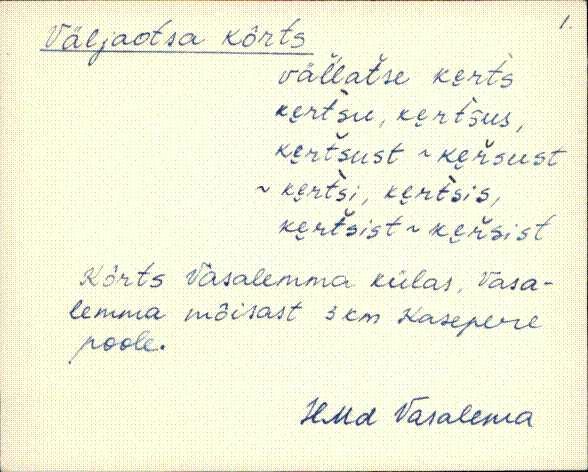 1.
Väljaotsa kõrts
vällatse kẹrts
kẹrtsu, kẹrtsus,
kẹrtsust ~ kẹrsust
~ kẹrtsi, kẹrtsis,
kẹrtsist ~ kẹrsist
Kõrts Vasalemma külas, Vasa-
lemma mõisast 3 km Kasepere
poole.
HMd Vasalema